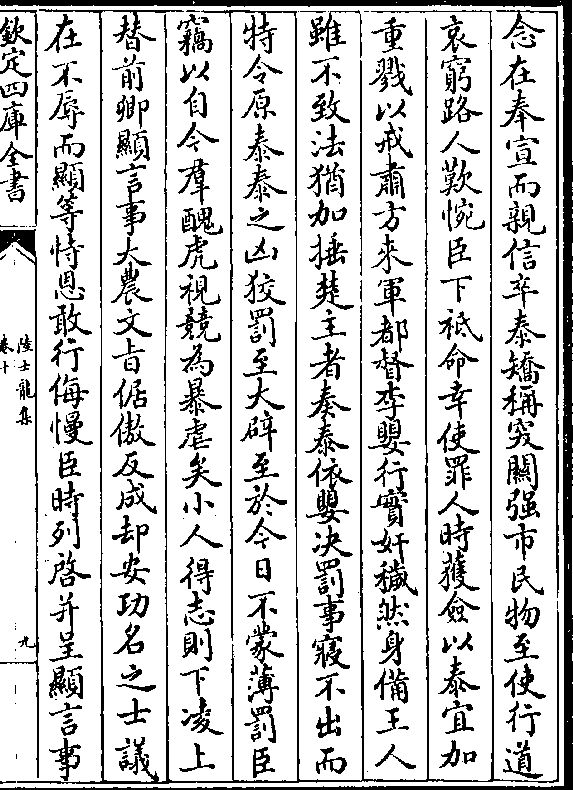 念在奉宣而親信卒泰矯稱突關强市民物至使行道
哀窮路人歎惋臣下祇命幸使罪人時獲僉以泰宜加
重戮以戒肅方來軍都督李嬰行實奸穢然身備王人
雖不致法猶加捶楚主者奏泰依嬰决罰事寢不出而
特令原泰泰之凶狡罰至大辟至於今日不蒙薄罰臣
竊以自今羣醜虎視競為暴虐矣小人得志則下凌上
替前卿顯言事大農文旨倨傲反成却安功名之士議
在不辱而顯等恃恩敢行侮慢臣時列啓并呈顯言事
欽定四庫全書
陸士龍集
卷十
九